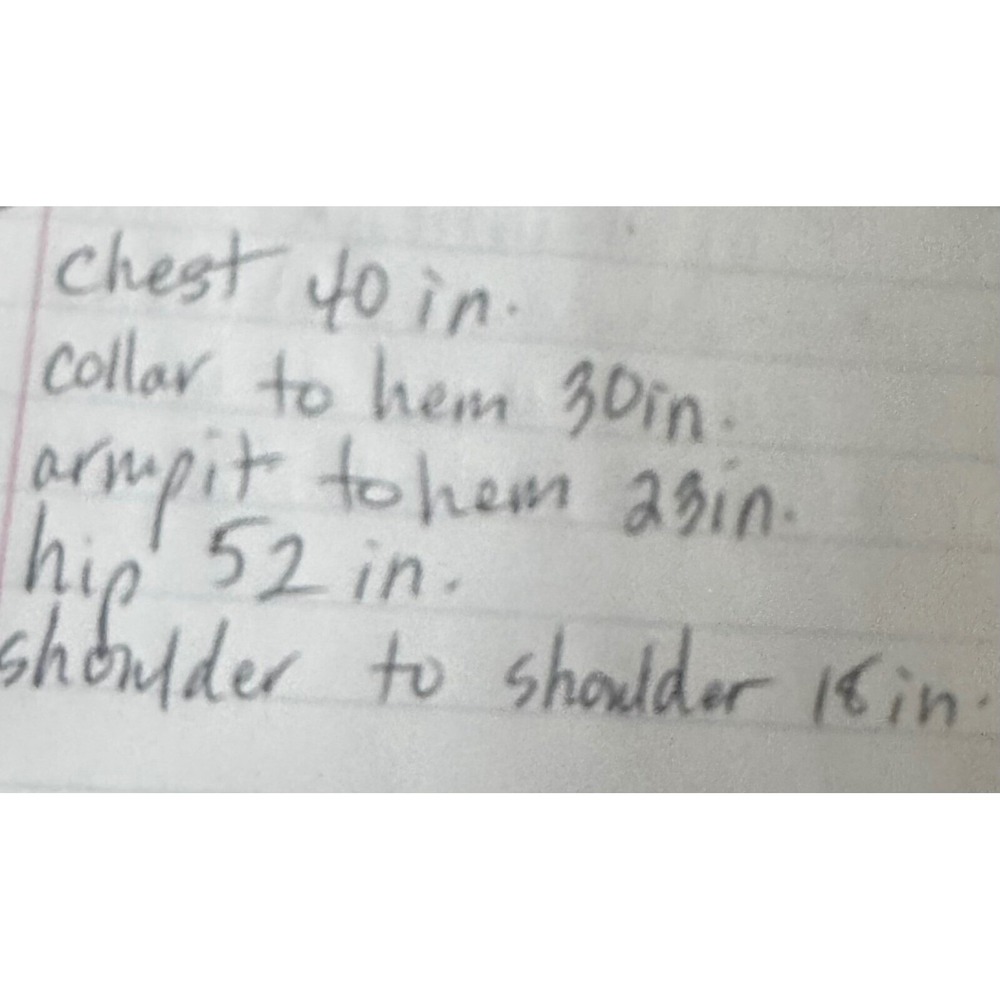 chest 40 in.
collar to hem 30in.
armpit to hem 23in.
hip 52 in.
shoulder to shoulder 18in.